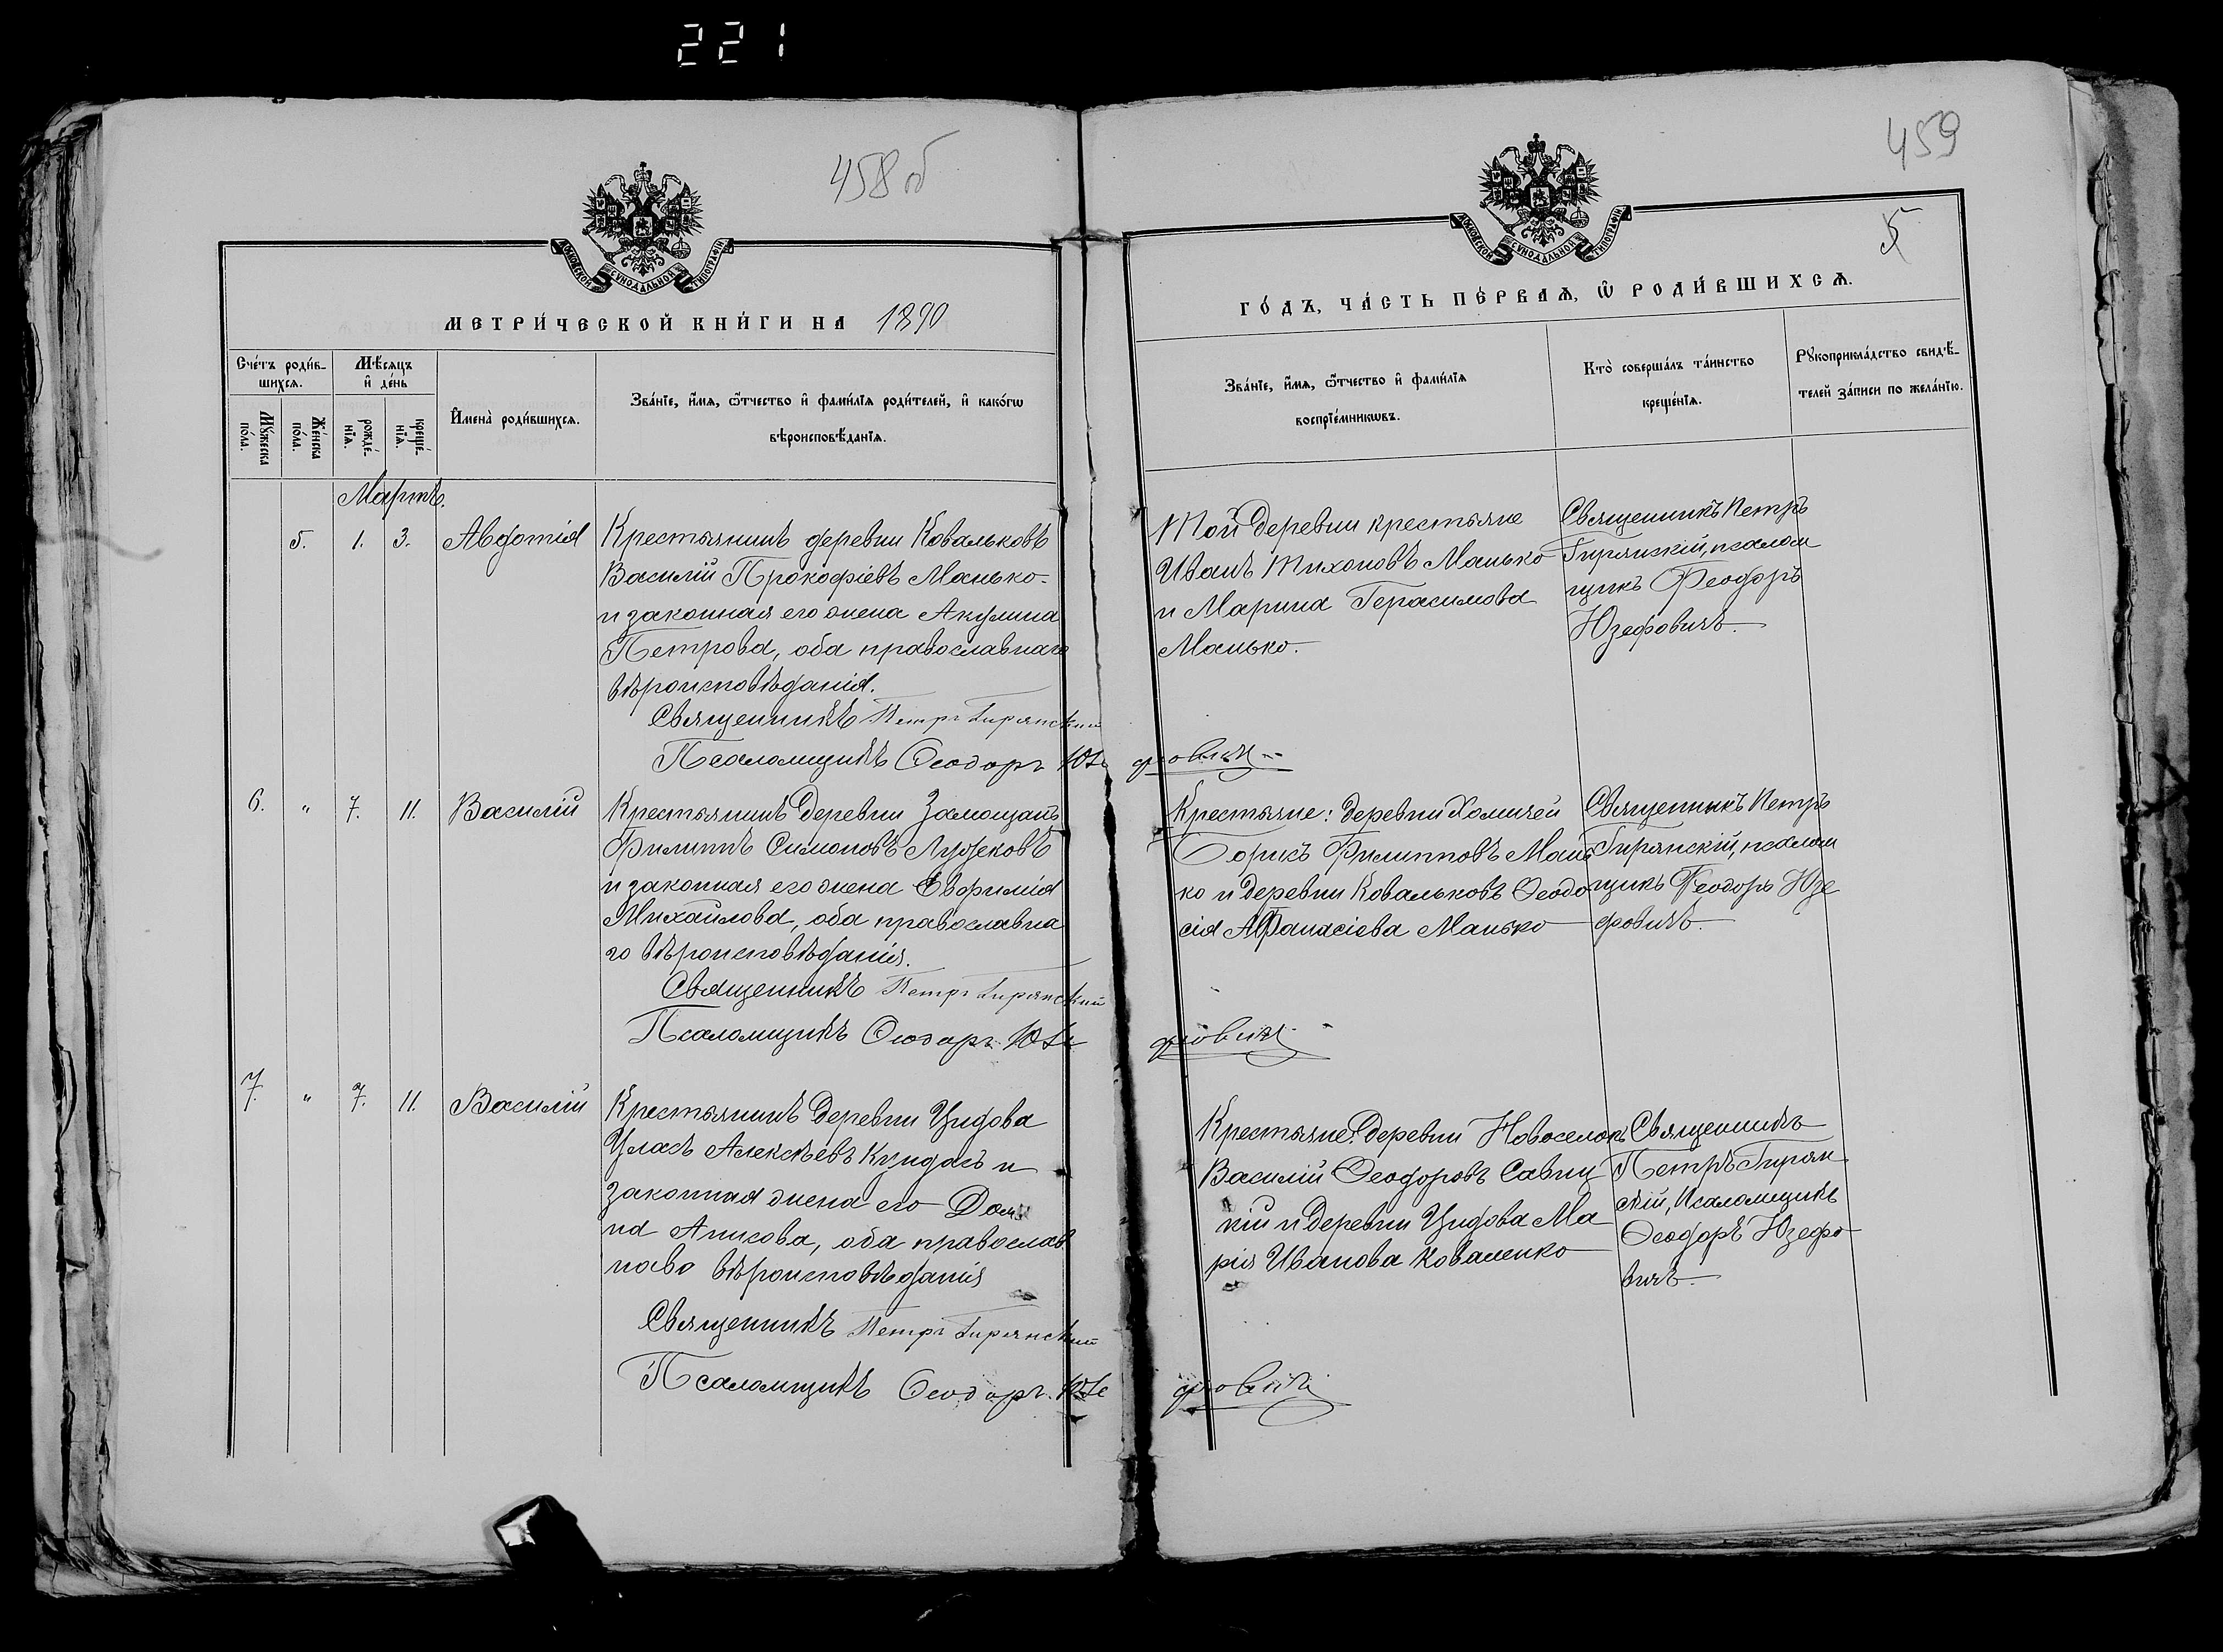 221
458 об
МОСКОВСКОЙ СѴНОДАЛЬНОЙ ТИПОГРАФІИ
МЕТРИ́ЧЕСКОЙ КНИ́ГИ НА 1890
Сче́тъ роди́в-
шихсѧ.
Мѣ́сяцъ
и҆ де́нь
Мꙋ́жеска
по́ла.
Же́нска
по́ла.
рожде́-
нїѧ.
креще́-
нїѧ.
И҆мена̀ роди́вшихсѧ.
Зва́нїе, и҆́мѧ, ѻ҆́тчество и҆ фами́лїѧ роди́телей, и҆ како́гѡ
вѣроисповѣ́данїѧ.
Мартъ.
5. 1. 3. Авдотія
Крестьянинъ деревни Ковальковъ
Василій Прокофіевъ Манько
и законная его жена Акулина
Петрова, оба православнаго
вѣроисповѣданія.
Священникъ Петръ Гирянский
Псаломщикъ Ѳеодоръ Юзе
фовичъ
6. " 7. 11. Василій
Крестьянинъ деревни Замощанъ
Филиппъ Симоновъ
и законная его жена Евфимія
Михайлова, оба православна
го вѣроисповѣданія.
Священникъ Петръ Гирянский
Псаломщикъ Ѳеодоръ Юзе
фовичъ
7. " 7. 11. Василій
Крестьянинъ деревни Цидова
Уласъ Алексѣевъ Кундасъ и
законная жена его Дом
на Аникова, оба православ
наво вѣроисповѣданія
Священникъ Петръ Гирянский
Псаломщикъ Ѳеодоръ Юзе
фовичъ
459
5
МОСКОВСКОЙ СѴНОДАЛЬНОЙ ТИПОГРАФІИ
ГО́ДЪ, ЧА́СТЬ ПЕ́РВАѦ, Ѡ҆ РОДИ́ВШИХСѦ.
Зва́нїе, и҆́мѧ, ѻ҆́тчество и҆ фами́лїѧ
воспрїе́мникѡвъ.
Кто̀ соверша́лъ та́инство
креще́нїѧ.
Рꙋкоприкла́дство свидѣ́-
телей за́писи по жела́нїю.
Той деревни крестьяне
Иванъ Тихоновъ Манько
и Марина Герасимова
Манько.
Священникъ Петръ
Гирянскій, псалом
щикъ Феодоръ
Юзефовичъ.
Крестьяне: деревни Хомичей
Борисъ Филипповъ Мань
ко и деревни Ковальковъ Ѳеодо
сія Афанасіева Манько
Священникъ Петръ
Гирянскій, псалом
щикъ Феодоръ Юзе
фовичъ.
Крестьяне: деревни Новоселокъ
Василій Ѳеодоровъ Савиц
кій и деревни Цидова Ма
рія Иванова Коваленко
Священникъ
Петръ Гирян
скій, Псаломщикъ
Ѳеодоръ Юзефо
вичъ.